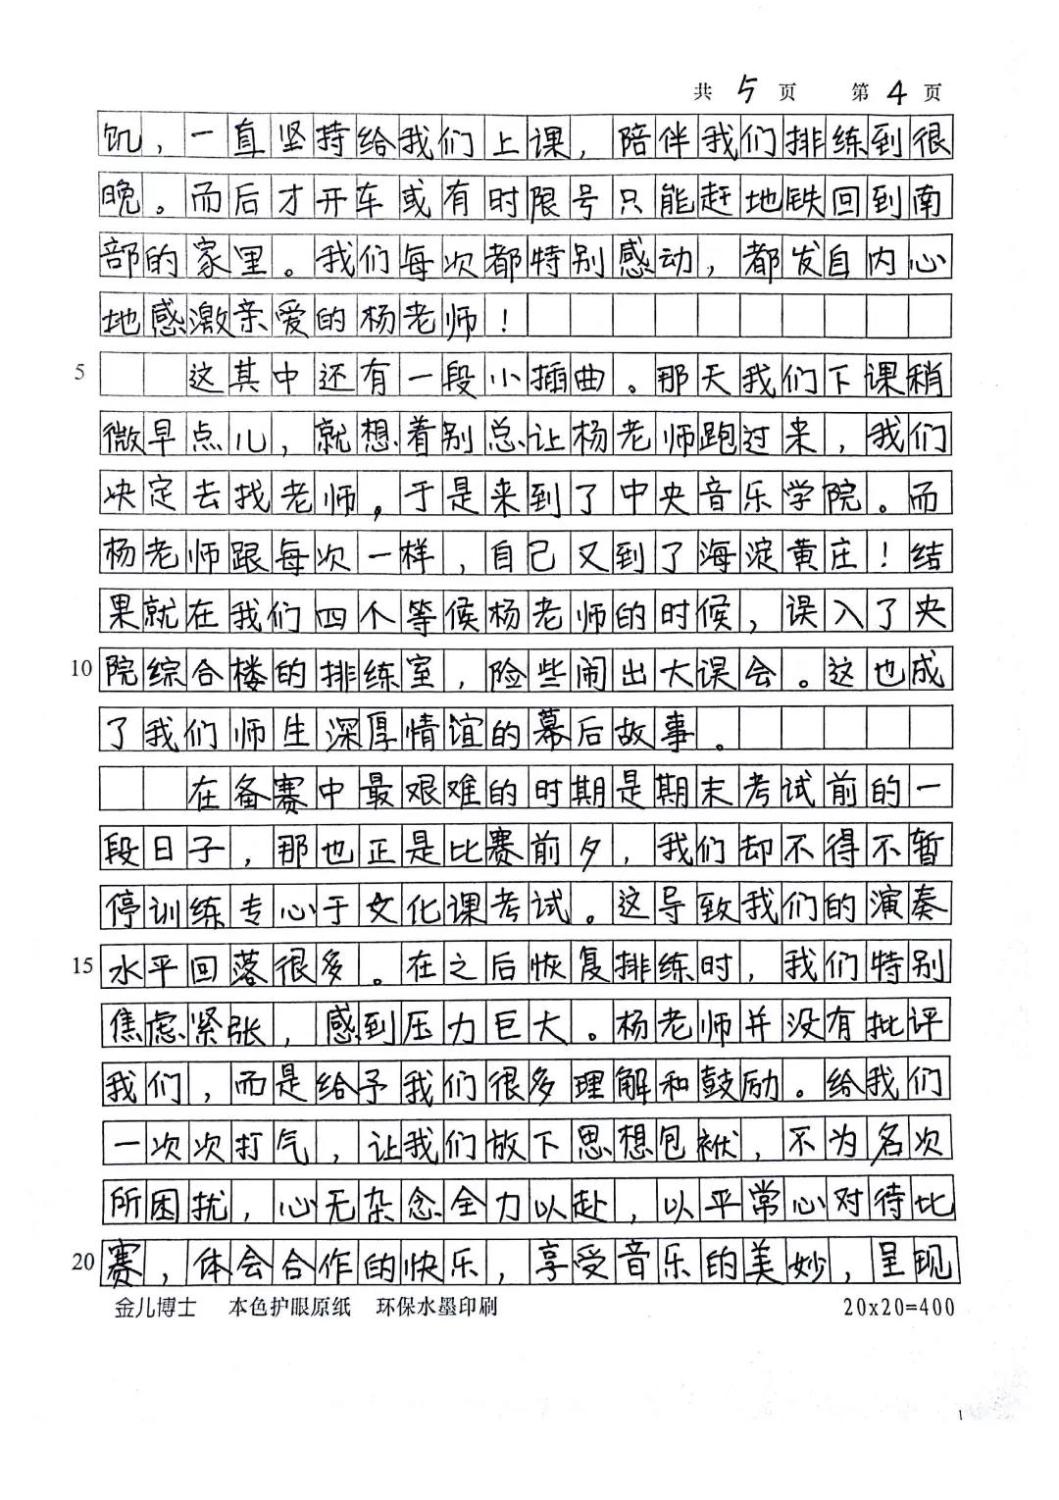 共 5 页 第 4 页
饥，一直坚持给我们上课，陪伴我们排练到很
晚。而后才开车或有时限号只能赶地铁回到南
部的家里。我们每次都特别感动，都发自内心
地感激亲爱的杨老师！
5 这其中还有一段小插曲。那天我们下课稍
微早点儿，就想着别总让杨老师跑过来，我们
决定去找老师。于是来到了中央音乐学院。而
杨老师跟每次一样，自己又到了海淀黄庄！结
果就在我们四个等候杨老师的时候，误入了央
10 院综合楼的排练室，险些闹出大误会。这也成
了我们师生深厚情谊的幕后故事。
在备赛中最艰难的时期是期末考试前的一
段日子，那也正是比赛前夕，我们却不得不暂
停训练专心于文化课考试。这导致我们的演奏
15 水平回落很多。在之后恢复排练时，我们特别
焦虑紧张，感到压力巨大。杨老师并没有批评
我们，而是给予我们很多理解和鼓励。给我们
一次次打气，让我们放下思想包袱，不为名次
所困扰，心无杂念全力以赴，以平常心对待比
20 赛，体会合作的快乐，享受音乐的美妙，呈现
金儿博士 本色护眼原纸 环保水墨印刷 20x20=400
1